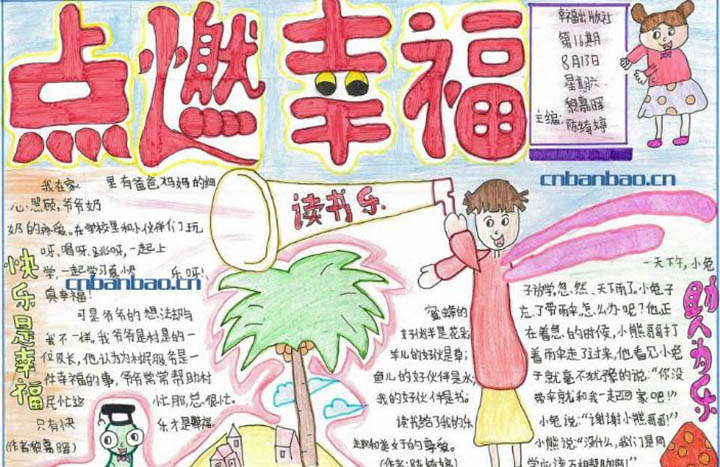 点燃幸福
幸福出版社
第16期
8月13日
星期六
黎嘉晖
主编:
陈绮婷
cnbanbao.cn
读书乐
快乐是幸福
我在家 里有爸爸,妈妈的细
心照顾,爷爷奶
奶的疼爱。在学校里和小伙伴们玩
呀、唱呀、跳呀,一起上
学,一起学习真快 乐呀!
真幸福!
cnbanbao.cn
可是爷爷的想法却与
我不一样。我爷爷是村里的一
位队长,他认为为村民服务是一
件幸福的事,爷爷常常帮助村
民忙这 忙那,总很忙。
只有快 乐才是幸福。
(作者:黎嘉晖)
蜜蜂的
好伙伴是花朵;
羊儿的好伙伴是草;
鱼儿的好伙伴是水;
我的好伙伴是书。
读书给了我的乐
助人为乐
一天下午,小兔
子放学,忽然,天下雨了,小兔子
忘了带雨伞怎么办呢?他正
在着急的时候,小熊哥哥打
着雨伞走了过来,他看见小兔
子就毫不犹豫的说:“你没
带伞就和我一起回家吧!”
小兔说:“谢谢小熊哥哥!”
小熊说:“没什么,我们是同
学应该互相帮助啊!”